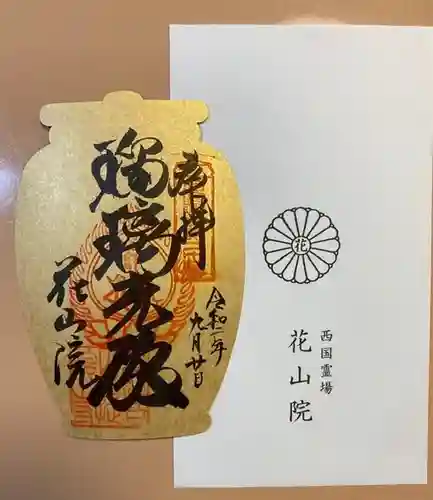 奉拝
瑠璃光殿
花山院
令和二年
九月廿日
花
西国霊場
花山院